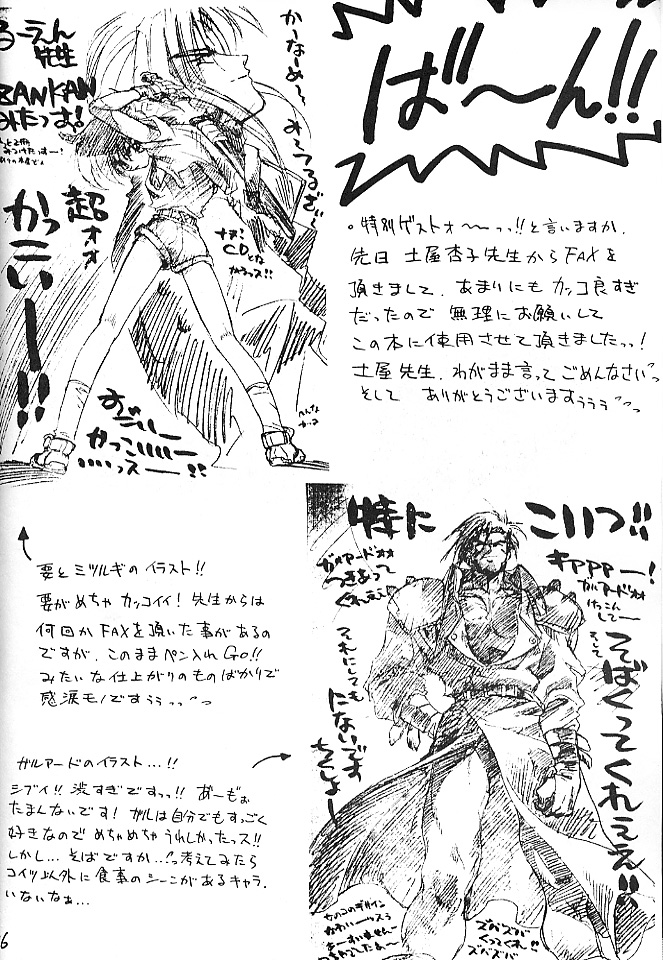 ば〜ん!!
。特別ゲストォ〜〜っっ!!と言いますか、
先日 土屋杏子先生からFAXを
頂きまして、あまりにも カッコ良すぎ
だったので 無理にお願いして
この本に使用させて頂きましたっっ!
土屋先生、わがまま言ってごめんなさいっ
そして ありがとうございますぅぅぅ
るーえん
先生
ZANKAN
みたっす!
超
ォォ
かっこいー!!
かーなーめ〜
みてつるぎぃ〜
CDとな
すごいー
かっこいいいー
いいいっスー!!
要とミツルギのイラスト!!
要がめちゃ カッコイイ! 先生からは
何回かFAXを頂いた事があるの
ですが、このままペン入れGo!!
みたいな仕上がりのものばかりで
感涙モノですぅぅ
特に こいつ!!
ガルアードォォ
つきあって
くれぇぇ
キャアアアー!
ガルアードォォ
けっこん
してー
そして
そばくってくれええ!!
それにしても
にないです
ちくしょー
ガルアードのイラスト...!!
シブイ!! 渋すぎですっっ!! あーもぉ
たまんないです! ガルは自分でもすっごく
好きなので めちゃめちゃ うれしかったっス!!
しかし... そばですか...考えてみたら
コイツ以外に食事のシーンがあるキャラ、
いないなぁ...
女のコのデザイン
かわいーっスぅ
ズバズバ
くってくれ!!
ズバズバ
6